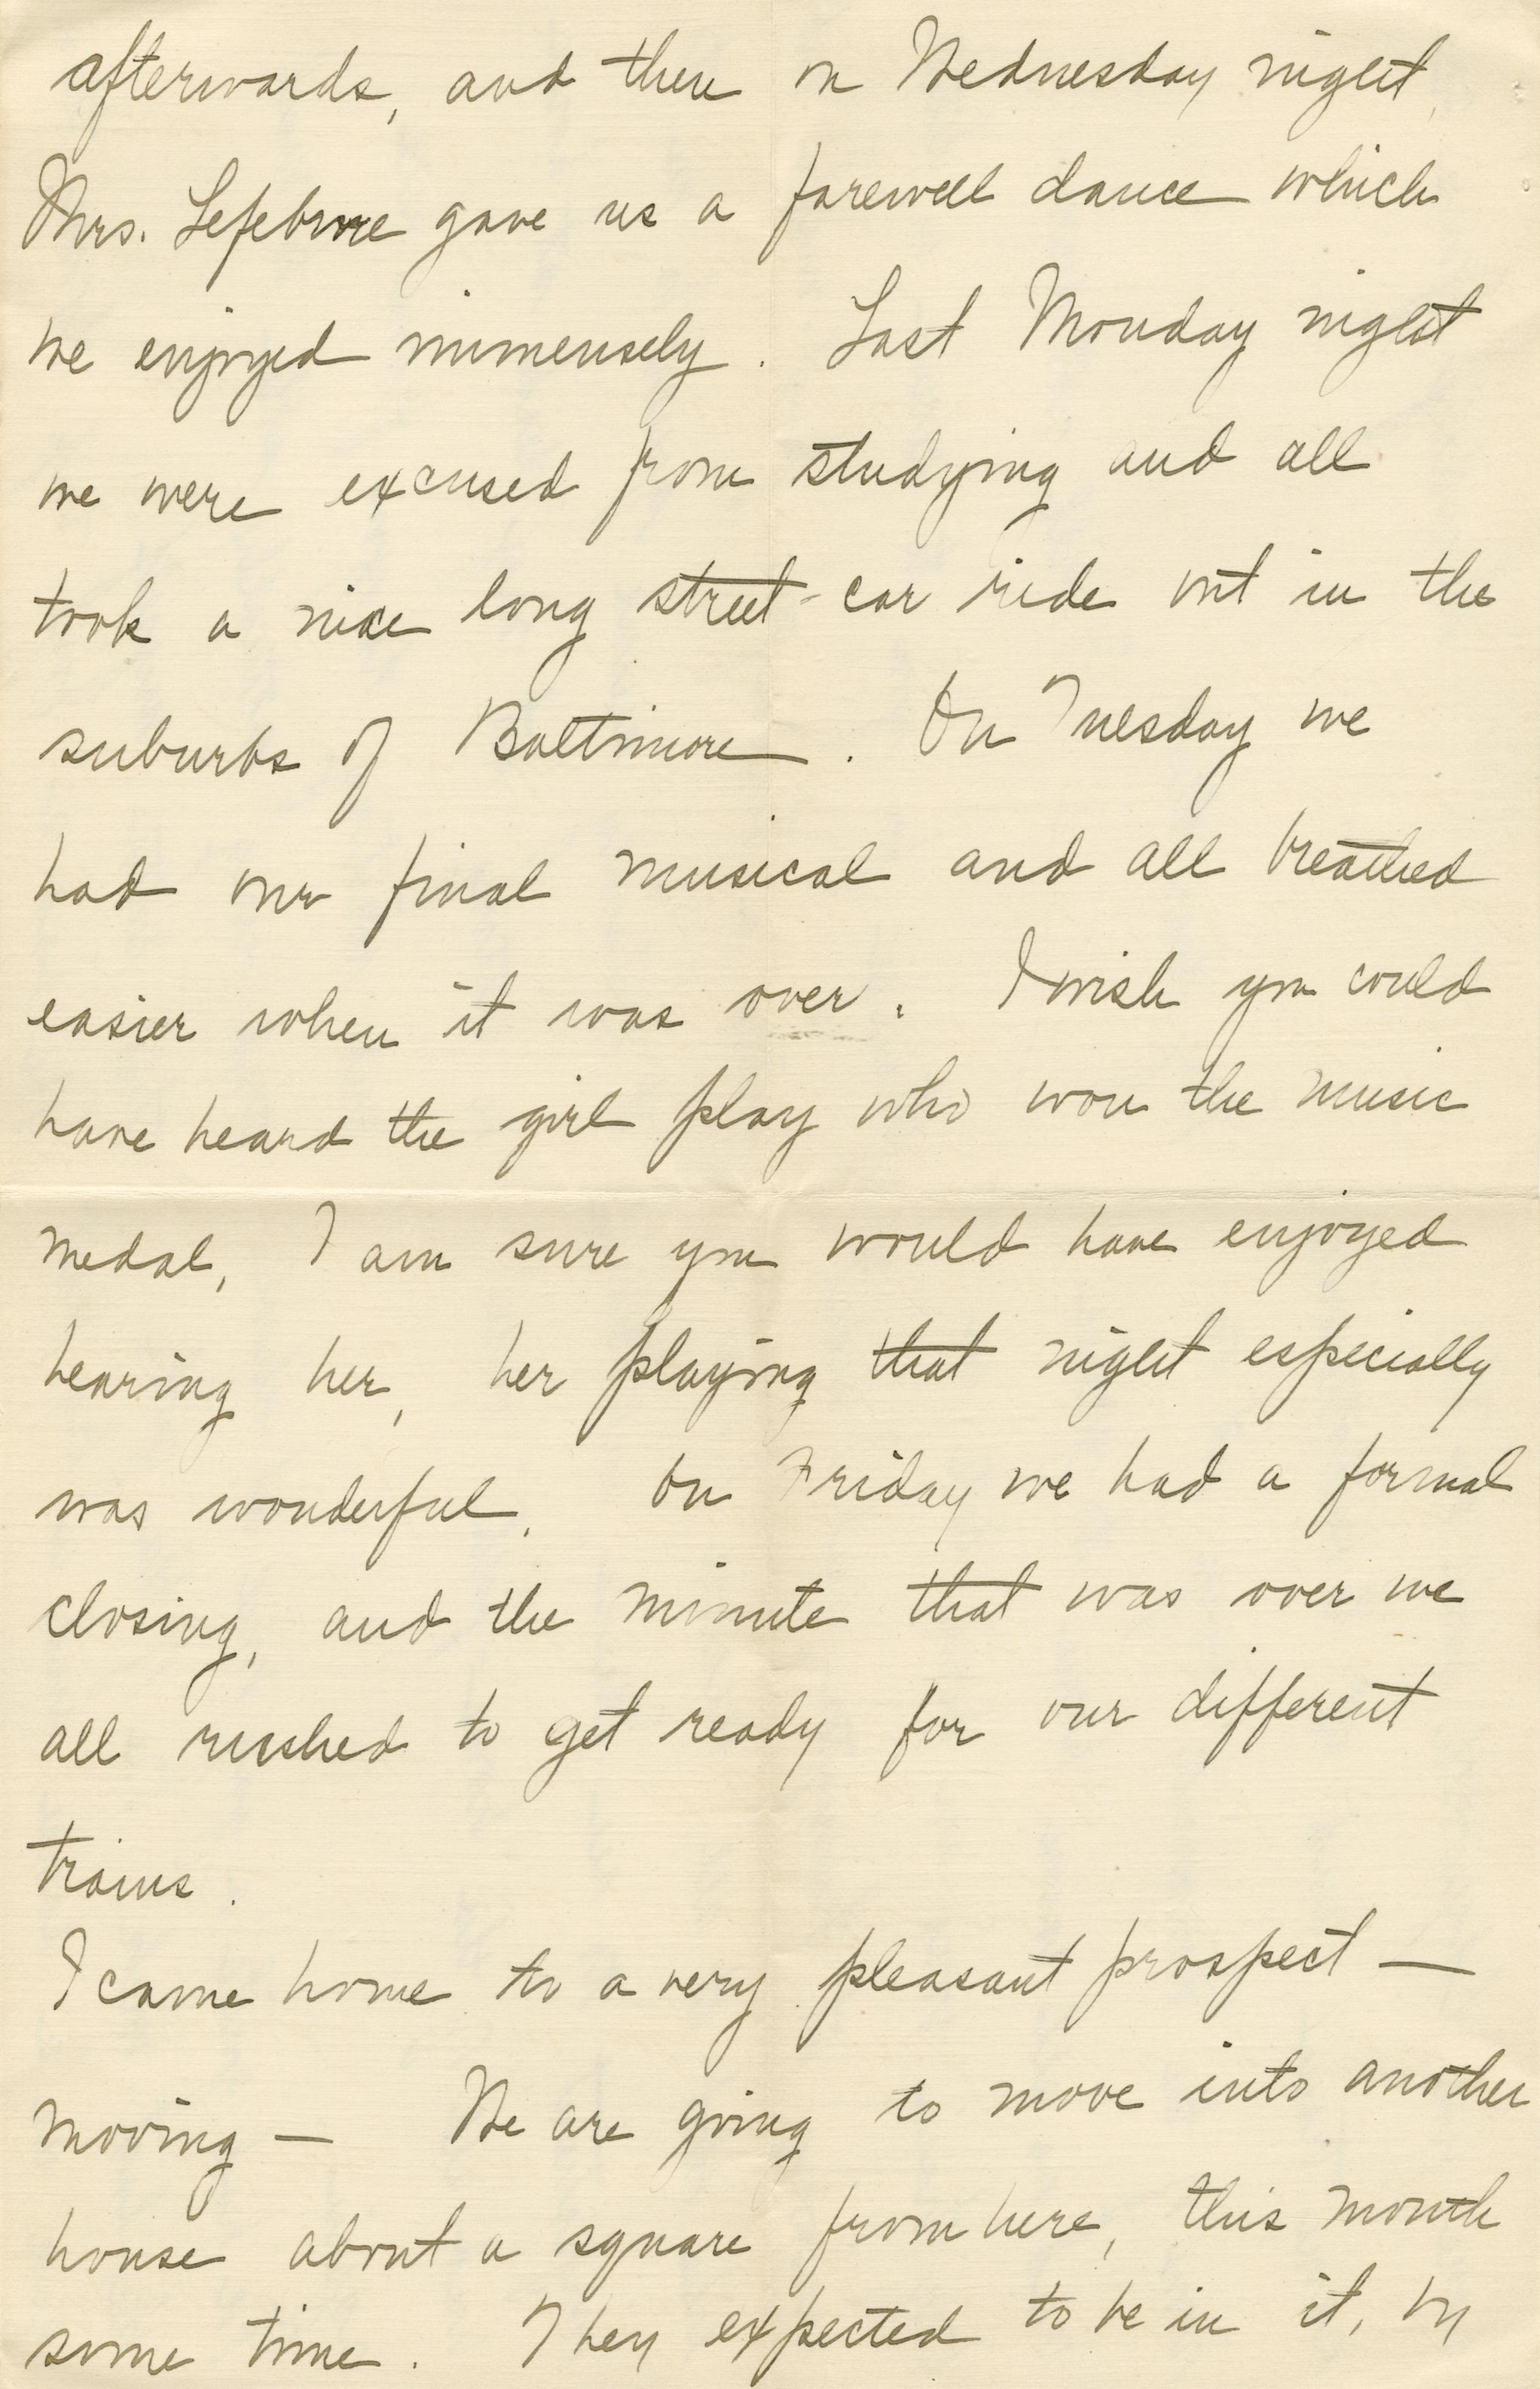 afterwards, and then on Wednesday night,
Mrs. Lefebvre gave us a farewell dance which
we enjoyed immensely. Last Monday night
we were excused from studying and all
took a nice long street-car ride out in the
suburbs of Baltimore. On Tuesday we
had our final musical and all breathed
easier when it was over. I wish you could
have heard the girl play who won the music
medal, I am sure you would have enjoyed
hearing her, her playing that night especially
was wonderful. On Friday we had a formal
closing, and the minute that was over we
all rushed to get ready for our different
trains.
I came home to a very pleasant prospect —
moving — We are going to move into another
house about a square from here, this month
some time. They expected to be in it, by